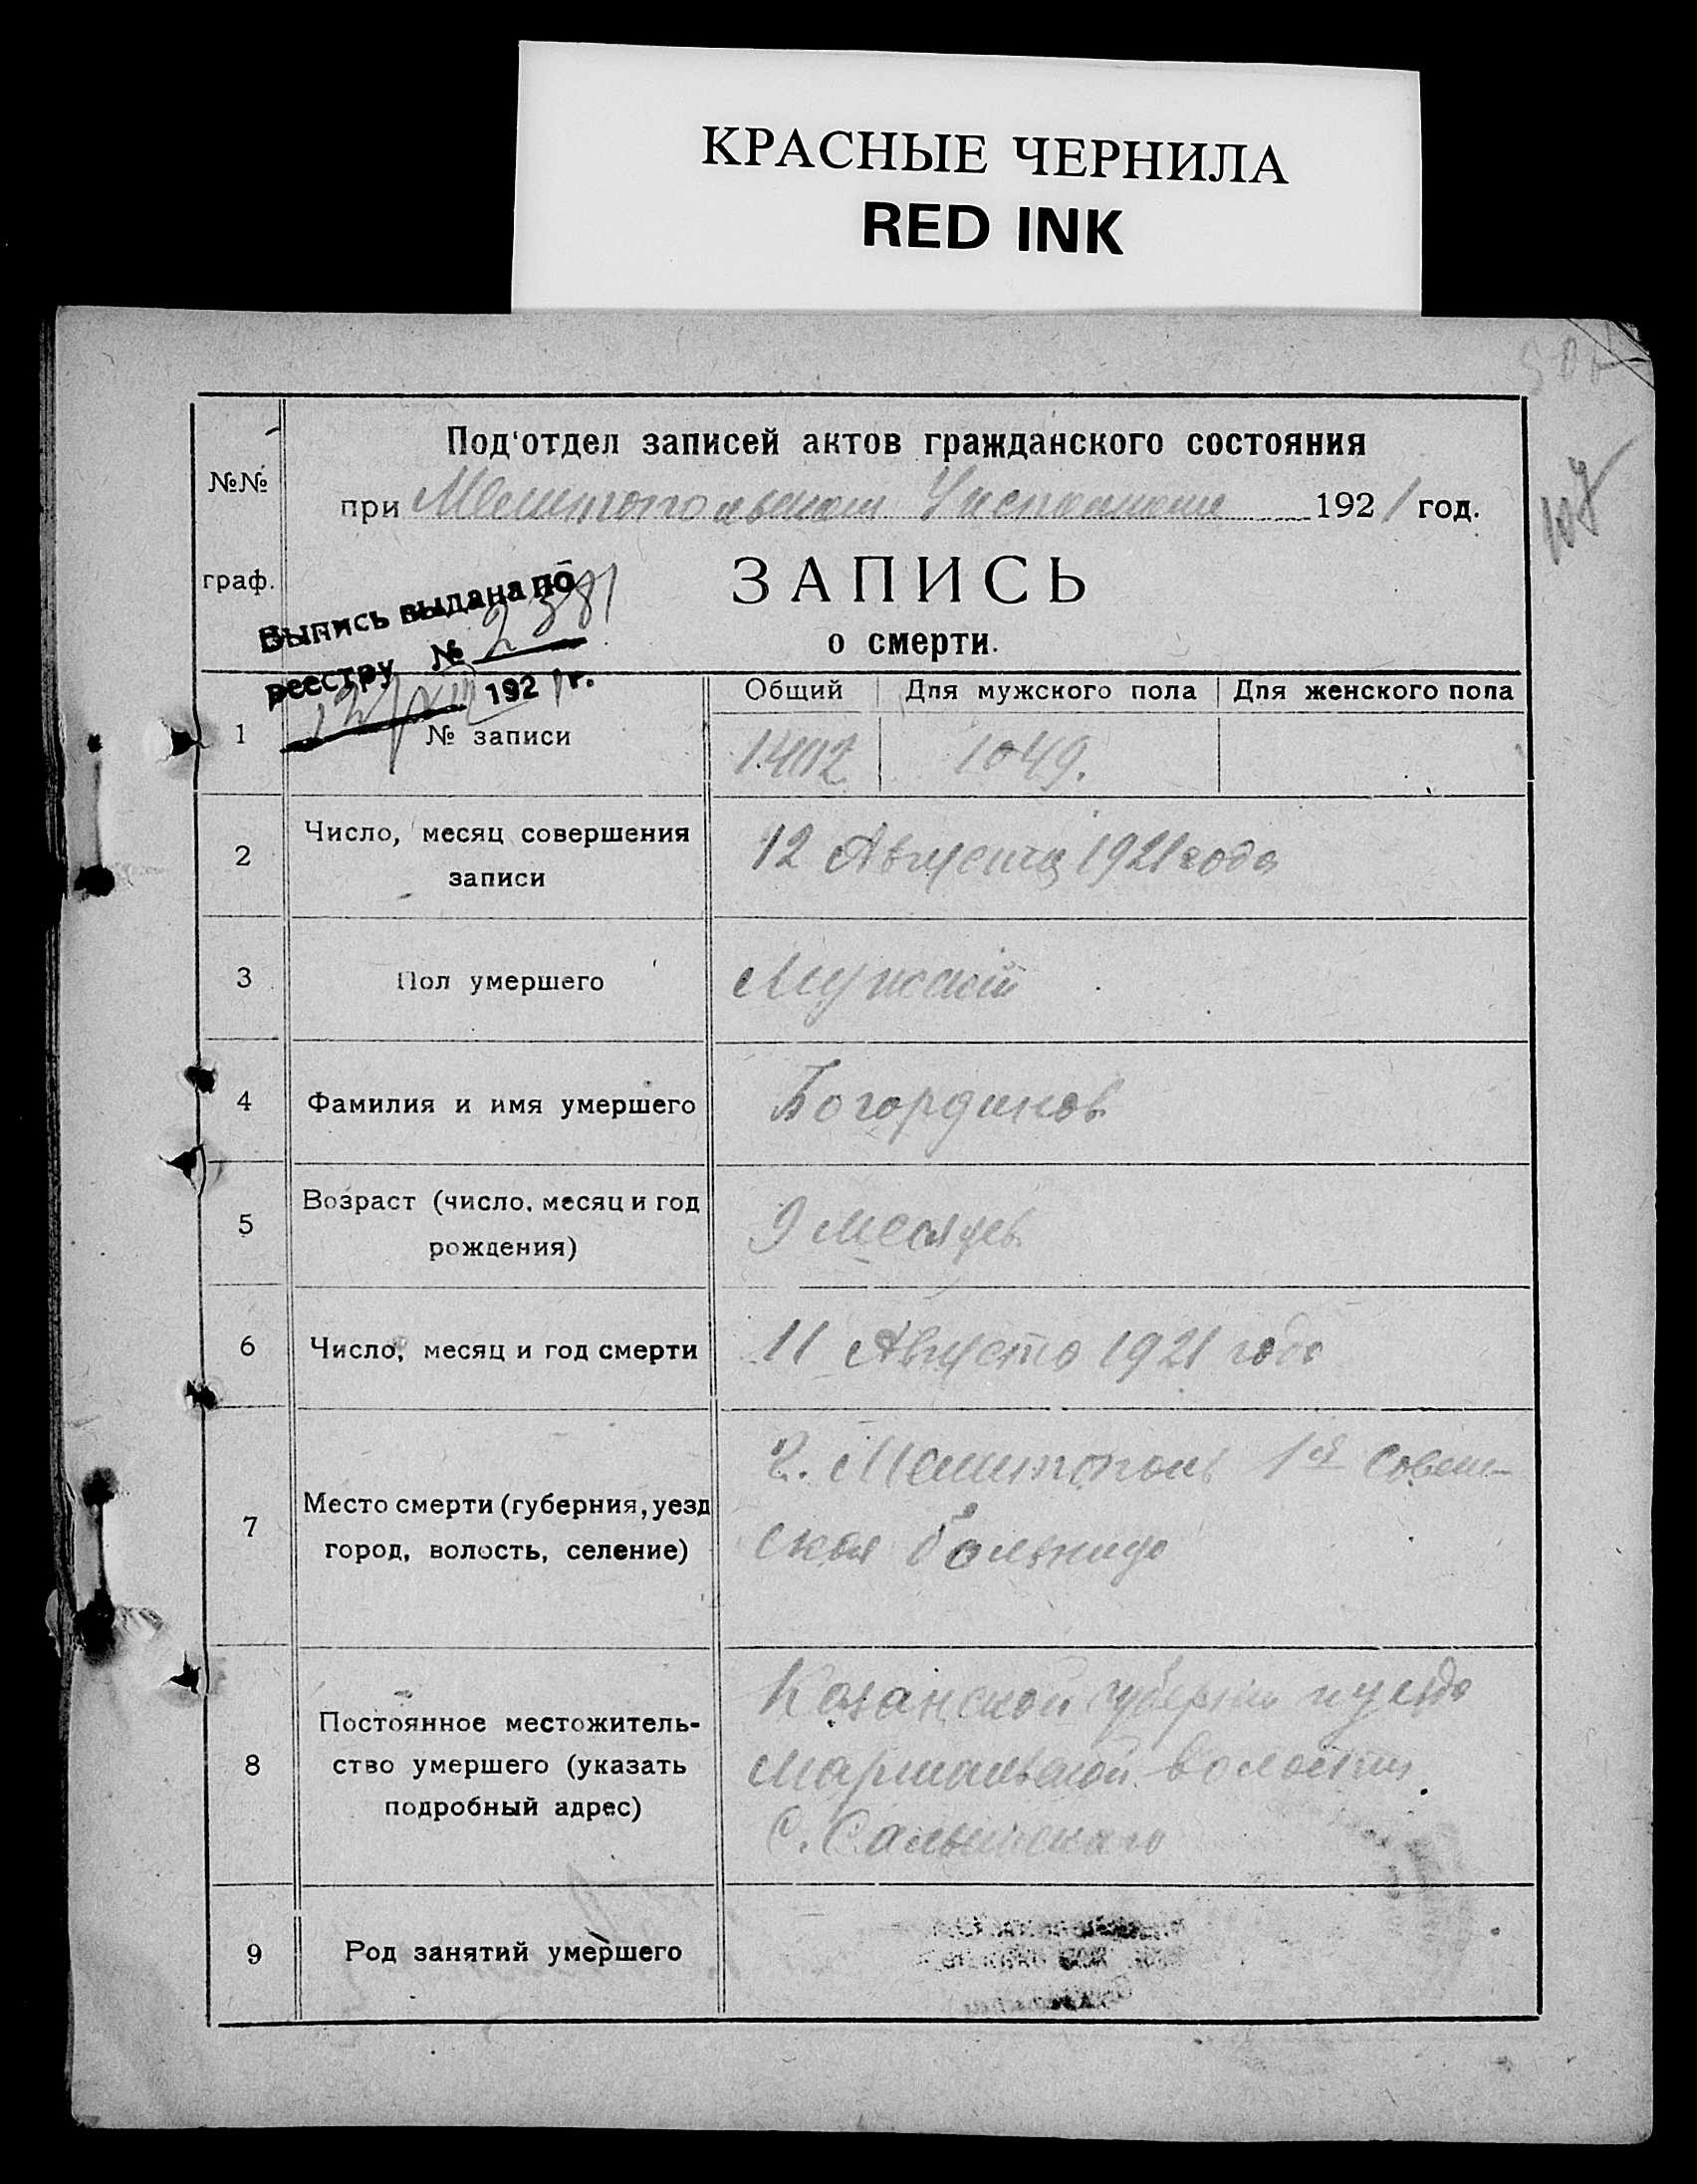 КРАСНЫЕ ЧЕРНИЛА
RED INK
Под'отдел записей актов гражданского состояния
№№
при Мелитопольском Уисполкоме 1921 год.
107
граф.
ЗАПИСЬ
о смерти.
Выпись выдана по
реестру № 2381
12/XII 1921 г.
Общий Для мужского пола Для женского пола
1 № записи 1402 1049.
2 Число, месяц совершения
записи
12 Августа 1921 года
3 Пол умершего Мужской
4 Фамилия и имя умершего Богординов
5 Возраст (число, месяц и год
рождения)
9 месяцев
6 Число, месяц и год смерти 11 Августа 1921 года
7 Место смерти (губерния, уезд
город, волость, селение)
г. Мелитополь 1ая Совет-
ская больница
8 Постоянное местожитель-
ство умершего (указать
подробный адрес)
Казанской губернии и уезда
волости
С.
9 Род занятий умершего